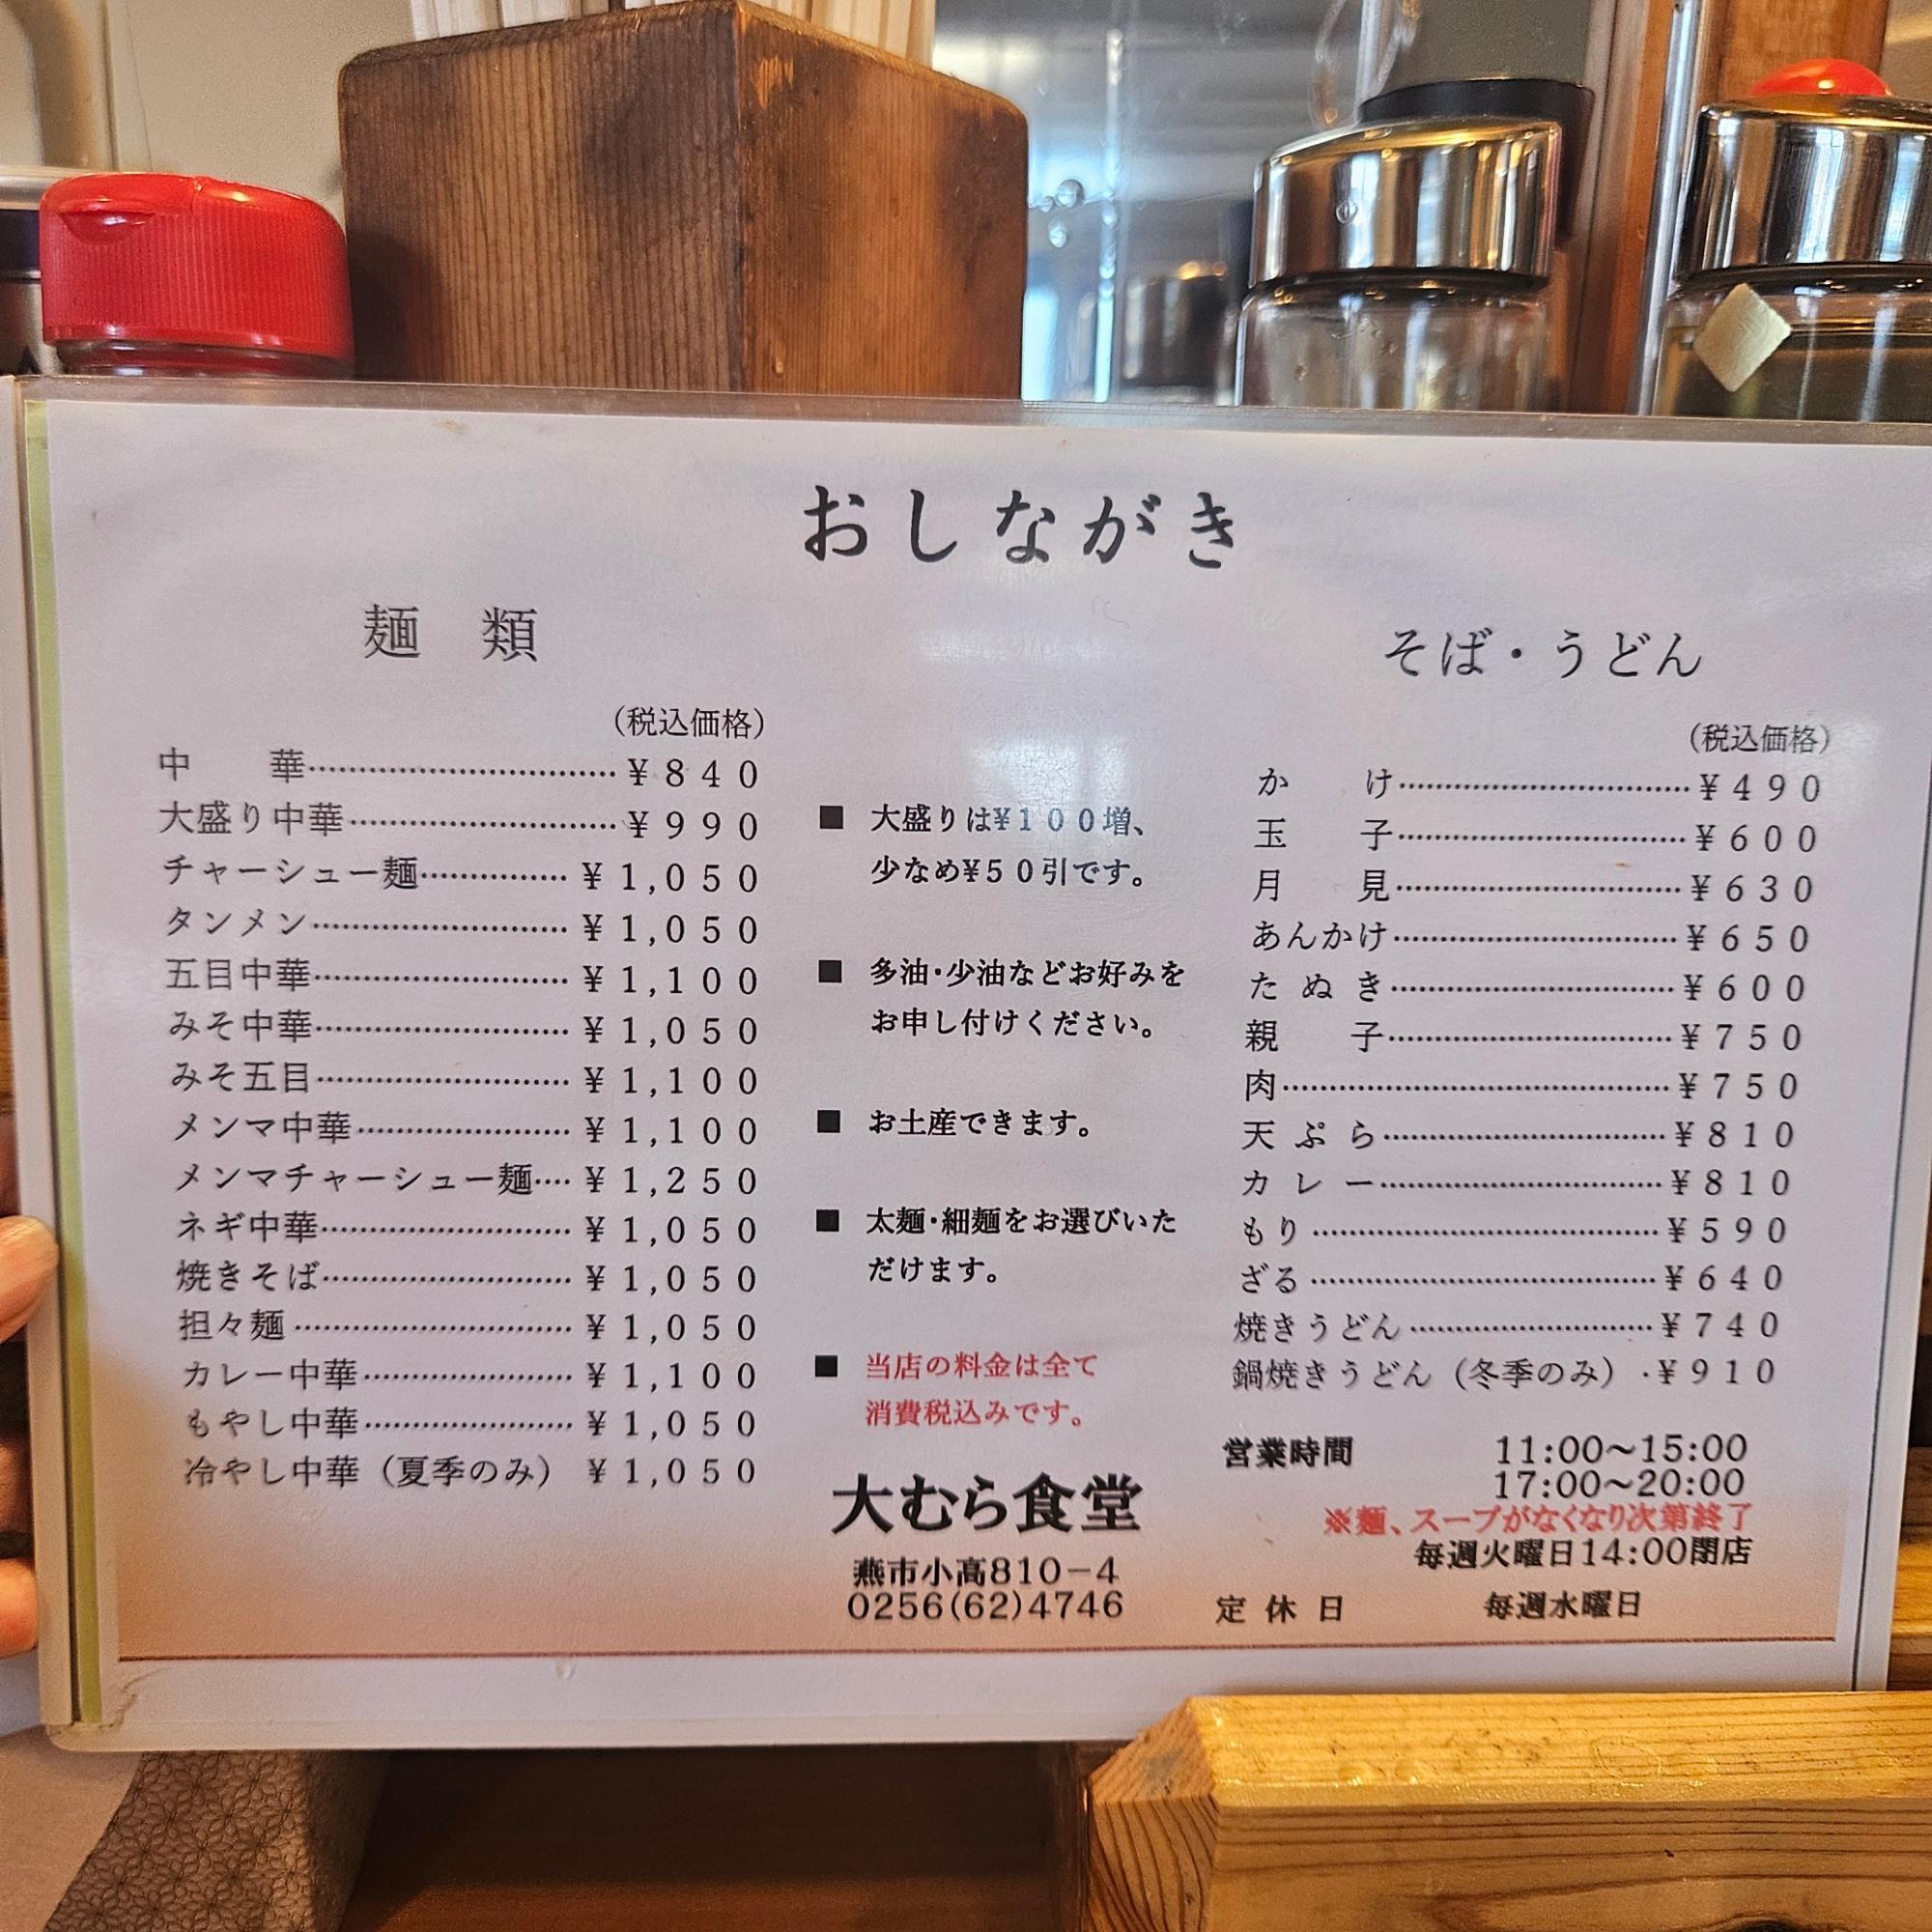 おしながき
麺 類
(税込価格)
中 華……………………………¥840
大盛り中華………………………¥990
チャーシュー麺……………¥1,050
タンメン………………………¥1,050
五目中華………………………¥1,100
みそ中華………………………¥1,050
みそ五目………………………¥1,100
メンマ中華……………………¥1,100
メンマチャーシュー麺…¥1,250
ネギ中華………………………¥1,050
焼きそば………………………¥1,050
担々麺…………………………¥1,050
カレー中華……………………¥1,100
もやし中華……………………¥1,050
冷やし中華（夏季のみ） ¥1,050
■ 大盛りは¥100増、
少なめ¥50引です。
■ 多油・少油などお好みを
お申し付けください。
■ お土産できます。
■ 太麺・細麺をお選びいた
だけます。
■ 当店の料金は全て
消費税込みです。
大むら食堂
燕市小高810－4
0256(62)4746
そば・うどん
(税込価格)
か け…………………………¥490
玉 子…………………………¥600
月 見…………………………¥630
あんかけ…………………………¥650
た ぬ き…………………………¥600
親 子…………………………¥750
肉……………………………………¥750
天 ぷ ら…………………………¥810
カ レ ー…………………………¥810
もり………………………………¥590
ざる………………………………¥640
焼きうどん………………………¥740
鍋焼きうどん（冬季のみ）・¥910
営業時間 11:00〜15:00
17:00〜20:00
※麺、スープがなくなり次第終了
毎週火曜日14:00閉店
定 休 日 毎週水曜日